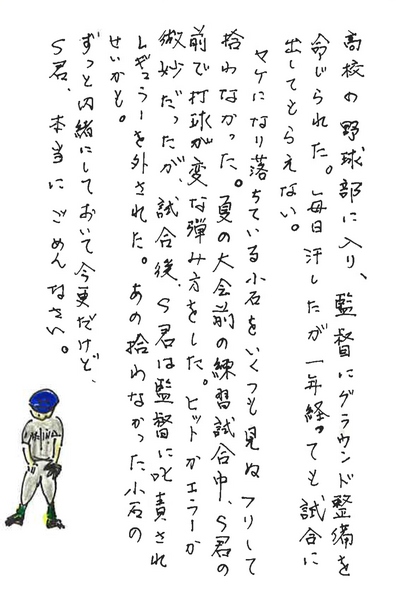 高校の野球部に入り、監督にグラウンド整備を
命じられた。毎日汗したが一年経っても試合に
出してもらえない。
ヤケになり落ちている小石をいくつも見ぬフリして
拾わなかった。夏の大会前の練習試合中、S君の
前で打球が変な弾み方をした。ヒットかエラーか
微妙だったが、試合後、S君は監督に叱責され
レギュラーを外された。あの拾わなかった小石の
せいかも。
ずっと内緒にしておいて今更だけど、
S君、本当にごめんなさい。